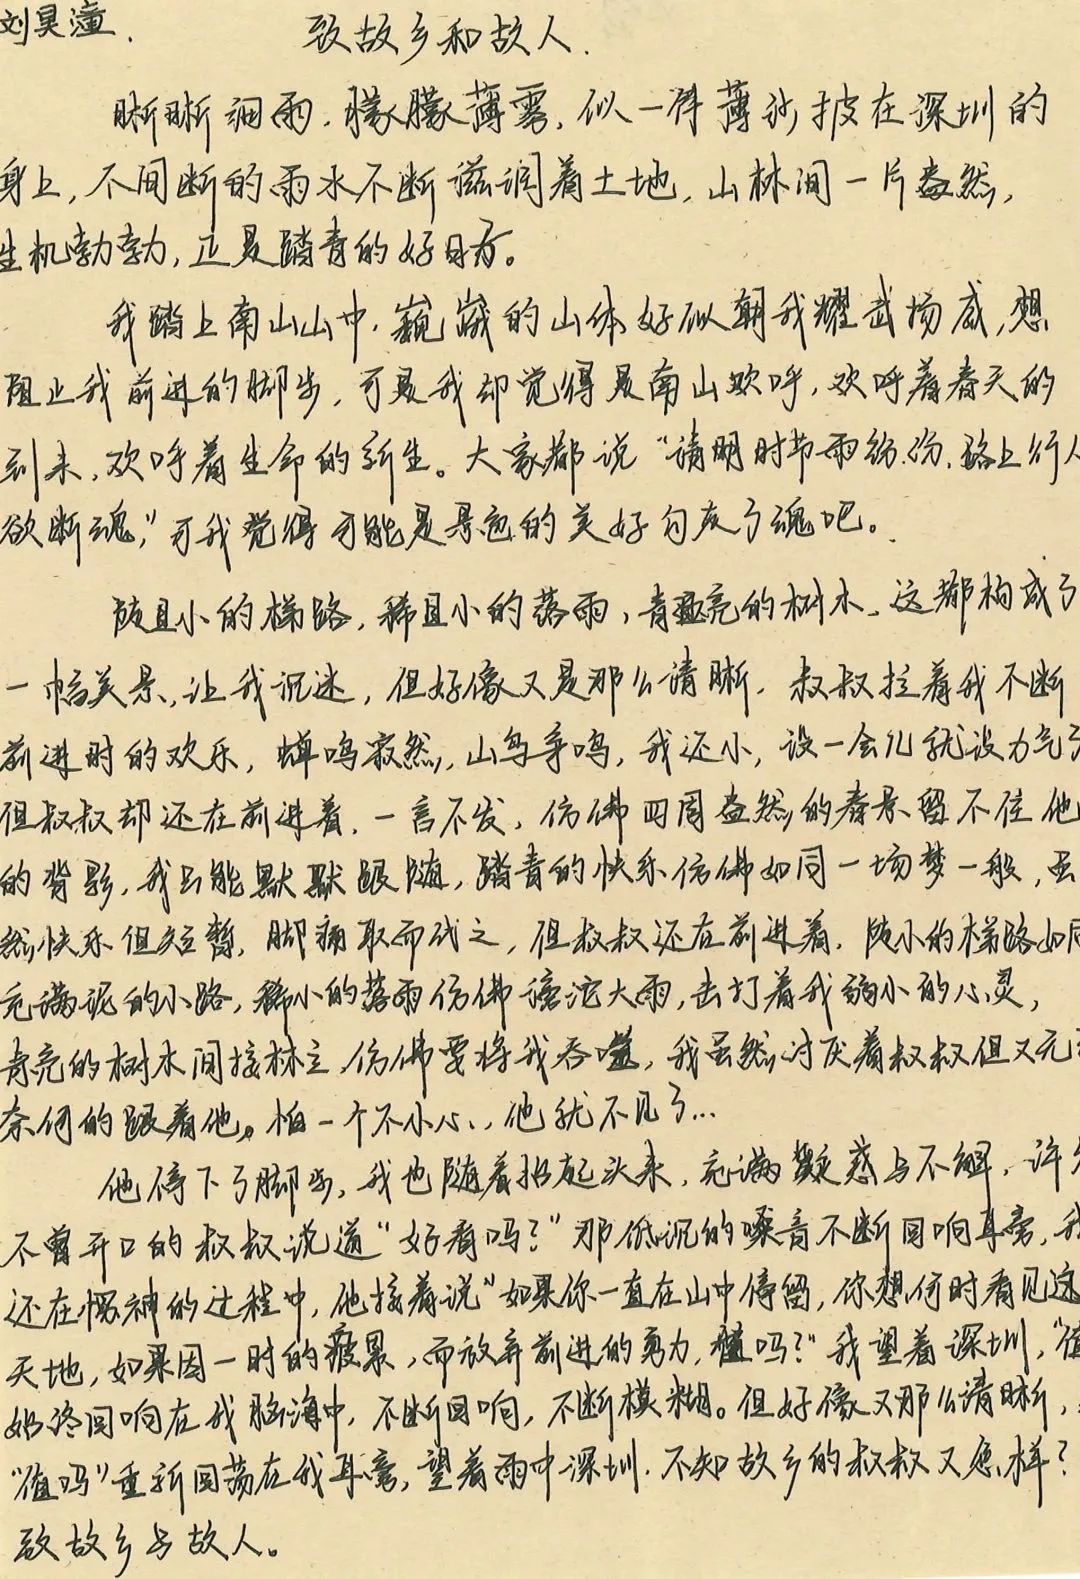 刘昊潼.
致故乡和故人.
晰晰细雨.朦朦薄雾,似一件薄沙披在深圳的
身上,不间断的雨水不断滋润着土地,山林间一片盎然,
生机勃勃,正是踏青的好日子。
我踏上南山山中.巍峨的山体好似朝我耀武扬威,想
阻止我前进的脚步,可是我却觉得是南山欢呼,欢呼着春天的
到来,欢呼着生命的新生。大家都说"清明时节雨纷纷.路上行人
欲断魂,"可我觉得可能是景色的美好勾灰了魂吧。
陡且小的梯路,稀且小的落雨,青亮的树木、这都构成了
一幅美景,让我沉迷,但好像又是那么清晰.叔叔拉着我不断
前进时的欢乐,蝉鸣寂然,山鸟争鸣,我还小,没一会儿就没力气了
但叔叔却还在前进着.一言不发,仿佛四周盎然的春景留不住他
的背影,我只能默默跟随,踏青的快乐仿佛如同一场梦一般,虽
然快乐但短暂,脚痛取而代之,但叔叔还在前进着.陡小的梯路如同
充满泥的小路,稀小的落雨仿佛滂沱大雨,击打着我弱小的心灵,
青亮的树木间接林立,仿佛要将我吞噬,我虽然讨厌着叔叔但又无可
奈何的跟着他,怕一个不小心,他就不见了...
他停下了脚步,我也随着抬起头来,充满疑惑与不解,许久
不曾开口的叔叔说道"好看吗?"那低沉的嗓音不断回响耳旁,我
还在愣神的过程中,他接着说"如果你一直在山中停留,你想何时看见这
天地,如果因一时的疲累,而放弃前进的勇力,值吗?"我望着深圳,"值
始终回响在我脑海中,不断回响,不断模糊。但好像又那么清晰,
"值吗"重新回荡在我耳旁,望着雨中深圳.不知故乡的叔叔又怎样?
致故乡与故人。